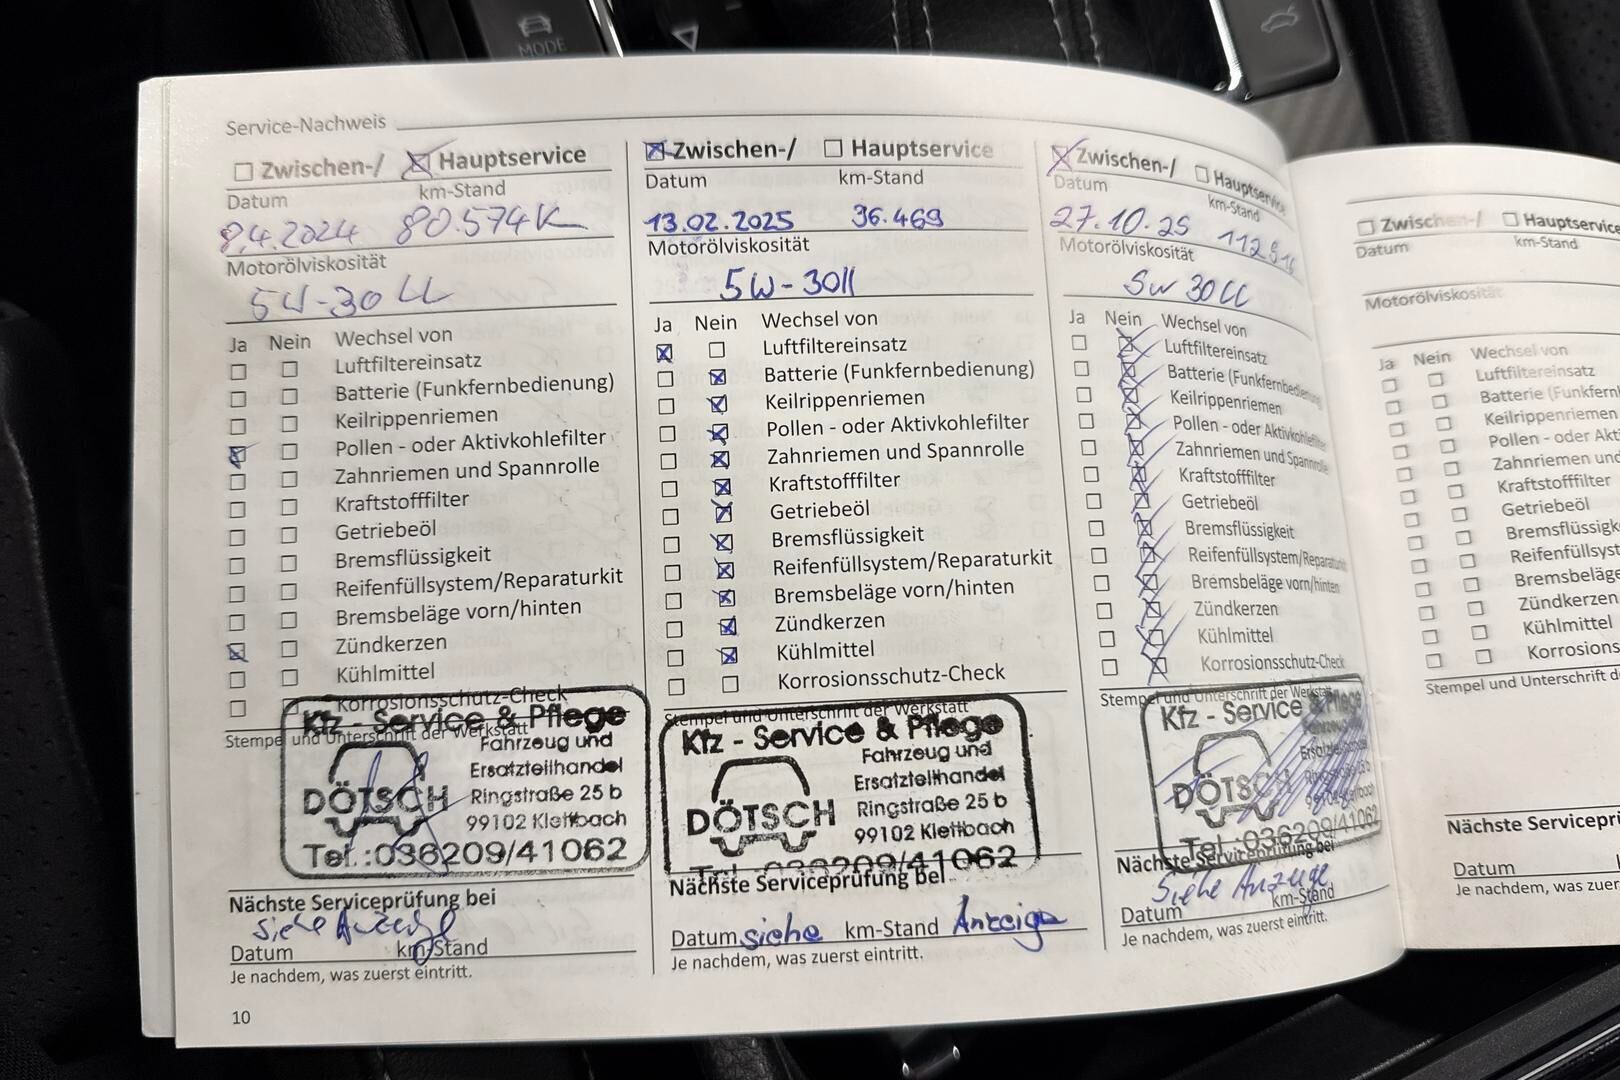 MODE
Service-Nachweis
Zwischen-/ Hauptservice
Datum km-Stand
8.4.2024 80.574K
Motorölviskosität
5W-30 LL
Ja Nein Wechsel von
Luftfiltereinsatz
Batterie (Funkfernbedienung)
Keilrippenriemen
Pollen - oder Aktivkohlefilter
Zahnriemen und Spannrolle
Kraftstofffilter
Getriebeöl
Bremsflüssigkeit
Reifenfüllsystem/Reparaturkit
Bremsbeläge vorn/hinten
Zündkerzen
Kühlmittel
Korrosionsschutz-Check
Stempel und Unterschrift der Werkstatt
Kfz - Service & Pflege
Fahrzeug und
Ersatzteilhandel
DÖTSCH
Ringstraße 25 b
99102 Klettbach
Tel.:036209/41062
Nächste Serviceprüfung bei
siehe Anzeige
Datum km-Stand
Je nachdem, was zuerst eintritt.
10
Zwischen-/ Hauptservice
Datum km-Stand
13.02.2025 96.469
Motorölviskosität
5W-30ll
Ja Nein Wechsel von
Luftfiltereinsatz
Batterie (Funkfernbedienung)
Keilrippenriemen
Pollen - oder Aktivkohlefilter
Zahnriemen und Spannrolle
Kraftstofffilter
Getriebeöl
Bremsflüssigkeit
Reifenfüllsystem/Reparaturkit
Bremsbeläge vorn/hinten
Zündkerzen
Kühlmittel
Korrosionsschutz-Check
Stempel und Unterschrift der Werkstatt
Kfz - Service & Pflege
Fahrzeug und
Ersatzteilhandel
DÖTSCH
Ringstraße 25 b
99102 Klettbach
Tel.:036209/41062
Nächste Serviceprüfung bei
Datum siehe km-Stand Anzeige
Je nachdem, was zuerst eintritt.
Zwischen-/ Hauptservice
Datum km-Stand
27.10.25
Motorölviskosität
5w 30 LL
Ja Nein Wechsel von
Luftfiltereinsatz
Batterie (Funkfernbedienung)
Keilrippenriemen
Pollen - oder Aktivkohlefilter
Zahnriemen und Spannrolle
Kraftstofffilter
Getriebeöl
Bremsflüssigkeit
Reifenfüllsystem/Reparaturkit
Bremsbeläge vorn/hinten
Zündkerzen
Kühlmittel
Korrosionsschutz-Check
Stempel und Unterschrift der Werkstatt
Kfz - Service & Pflege
DÖTSCH
Tel.:036209/41062
Nächste Serviceprüfung bei
Siehe Anzeige
Datum km-Stand
Je nachdem, was zuerst eintritt.
Zwischen-/ Hauptservice
Datum km-Stand
Motorölviskosität
Ja Nein Wechsel von
Luftfiltereinsatz
Batterie (Funkfern
Keilrippenriemen
Pollen - oder Akti
Zahnriemen und
Kraftstofffilter
Getriebeöl
Bremsflüssigk
Reifenfüllsyst
Bremsbeläge
Zündkerzen
Kühlmittel
Korrosions
Stempel und Unterschrift d
Nächste Servicepr
Datum
Je nachdem, was zuer